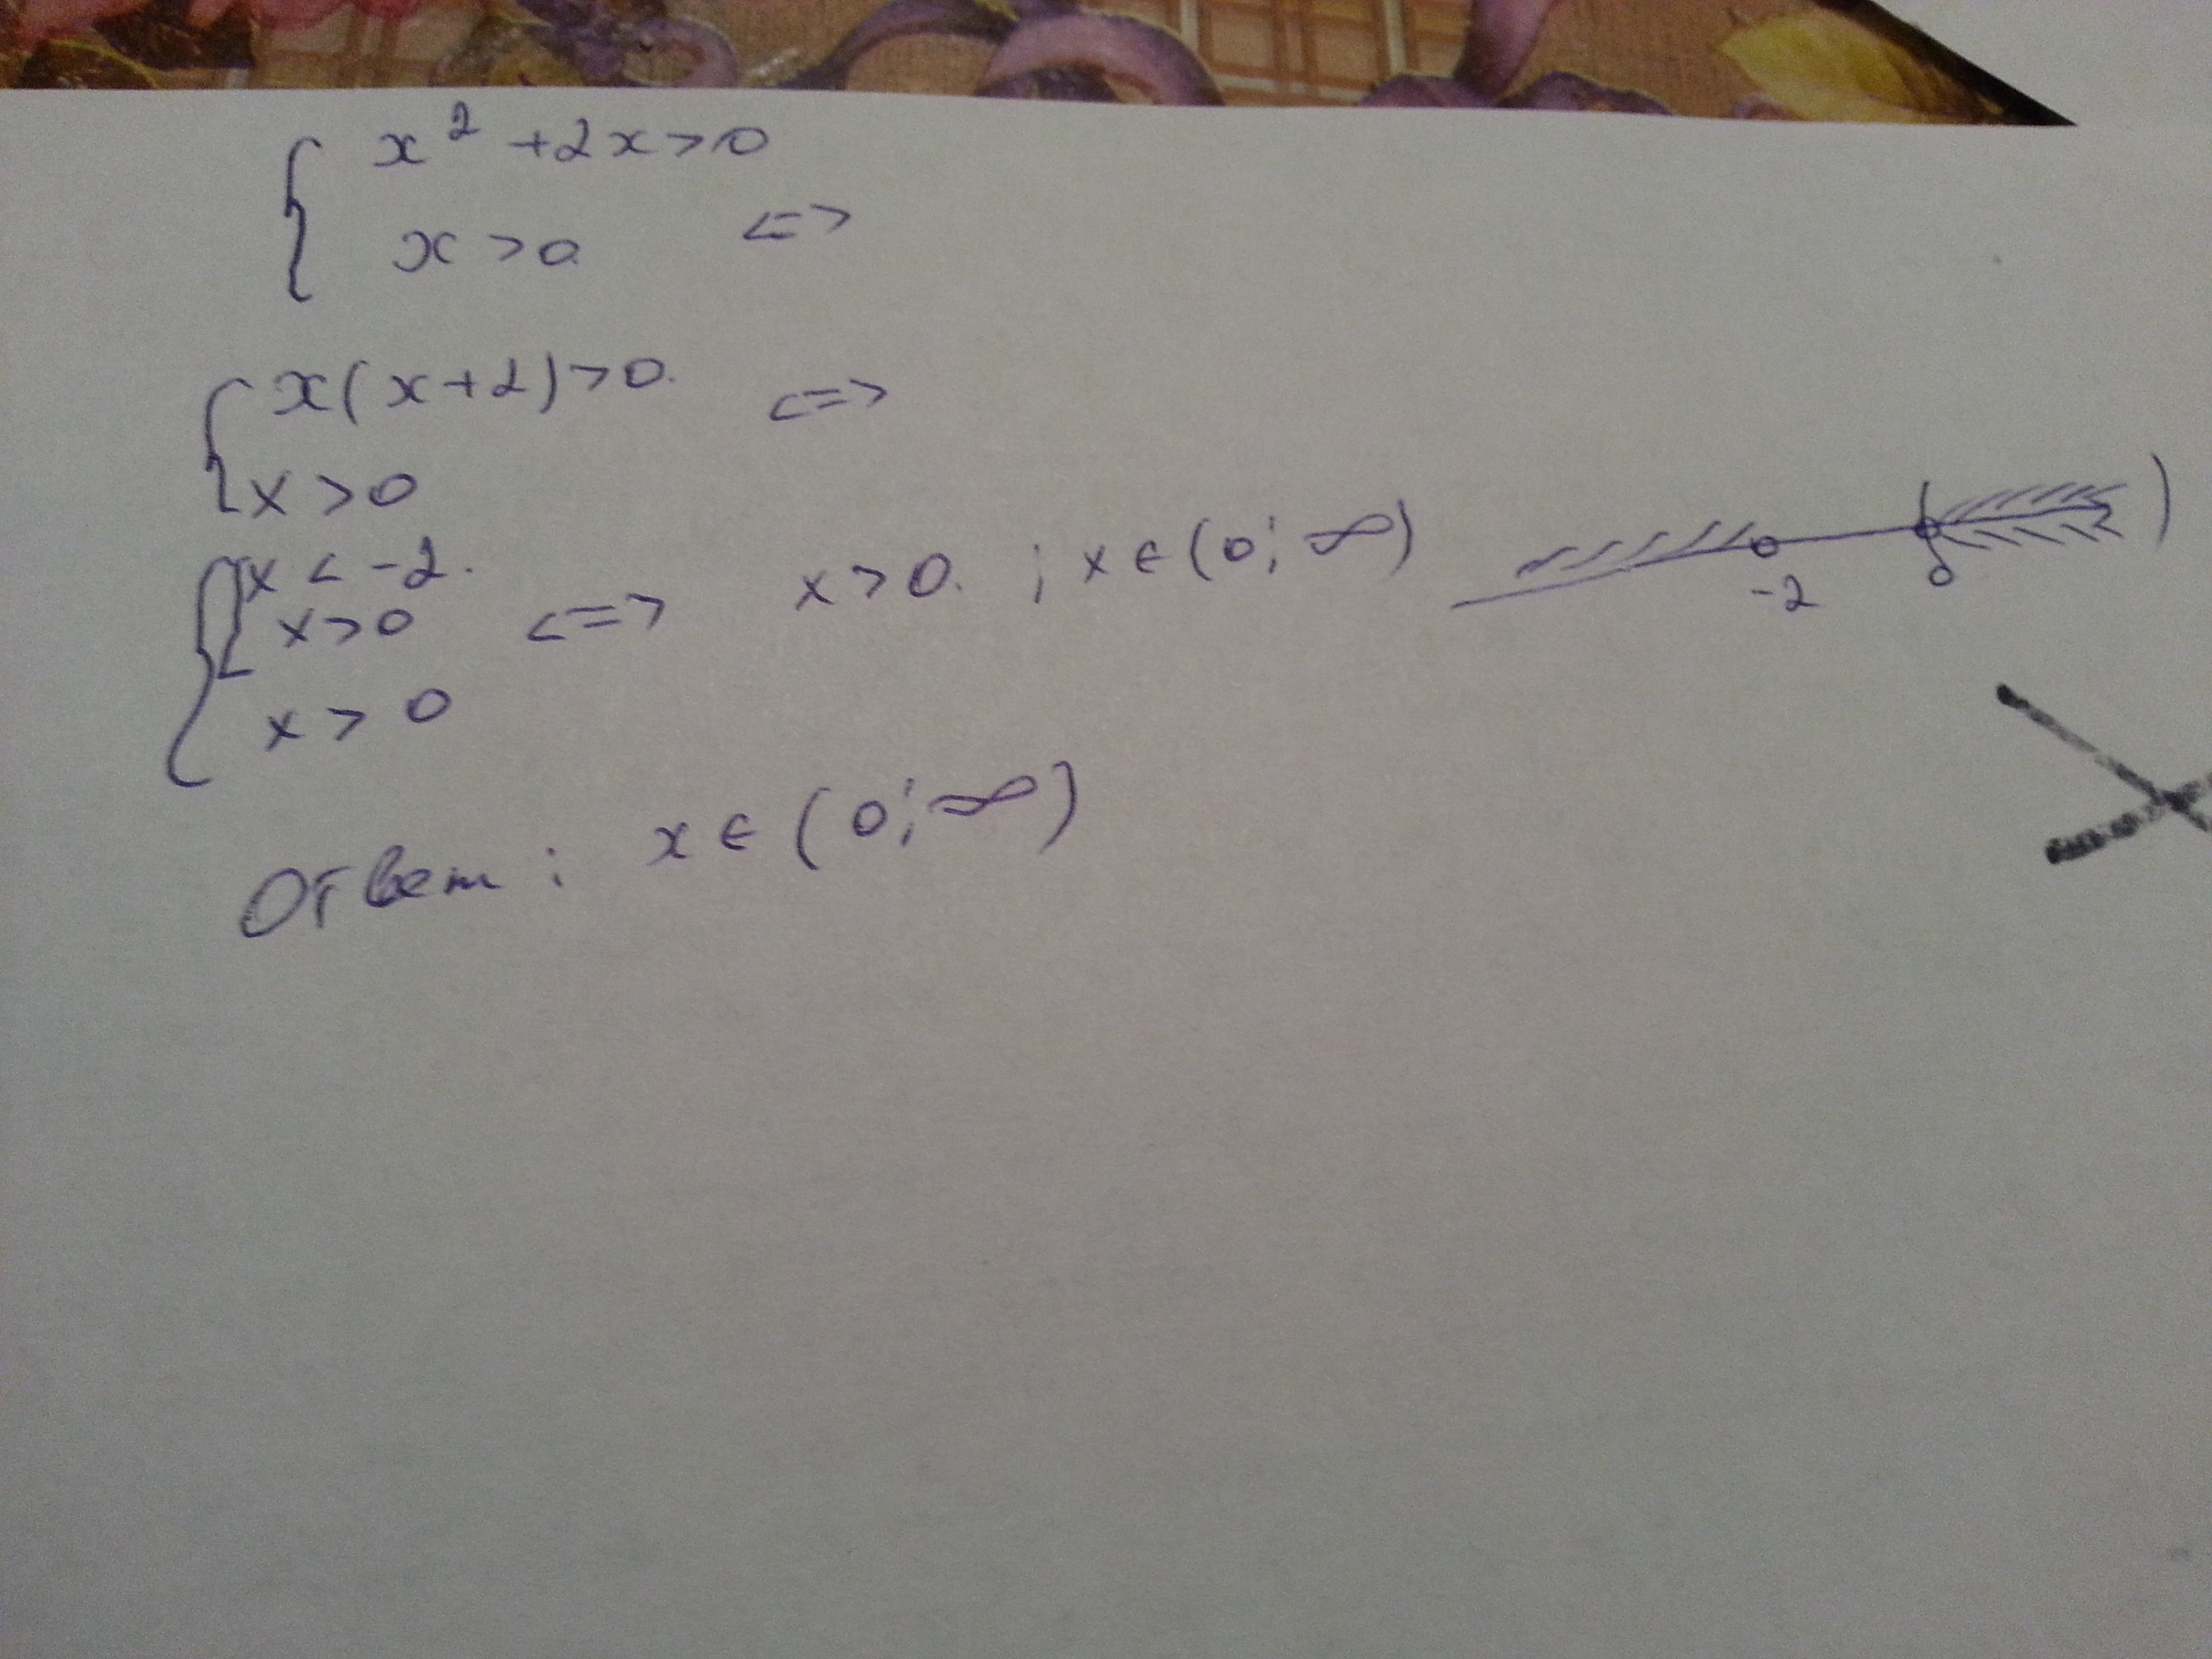 { x² + 2x > 0
x > 0 <=>
{ x(x+2) > 0. <=>
x > 0
{ [ x < -2.
x > 0 <=> x > 0. ; x ∈ (0; ∞)
-2 0
x > 0
Ответ : x ∈ (0; ∞)